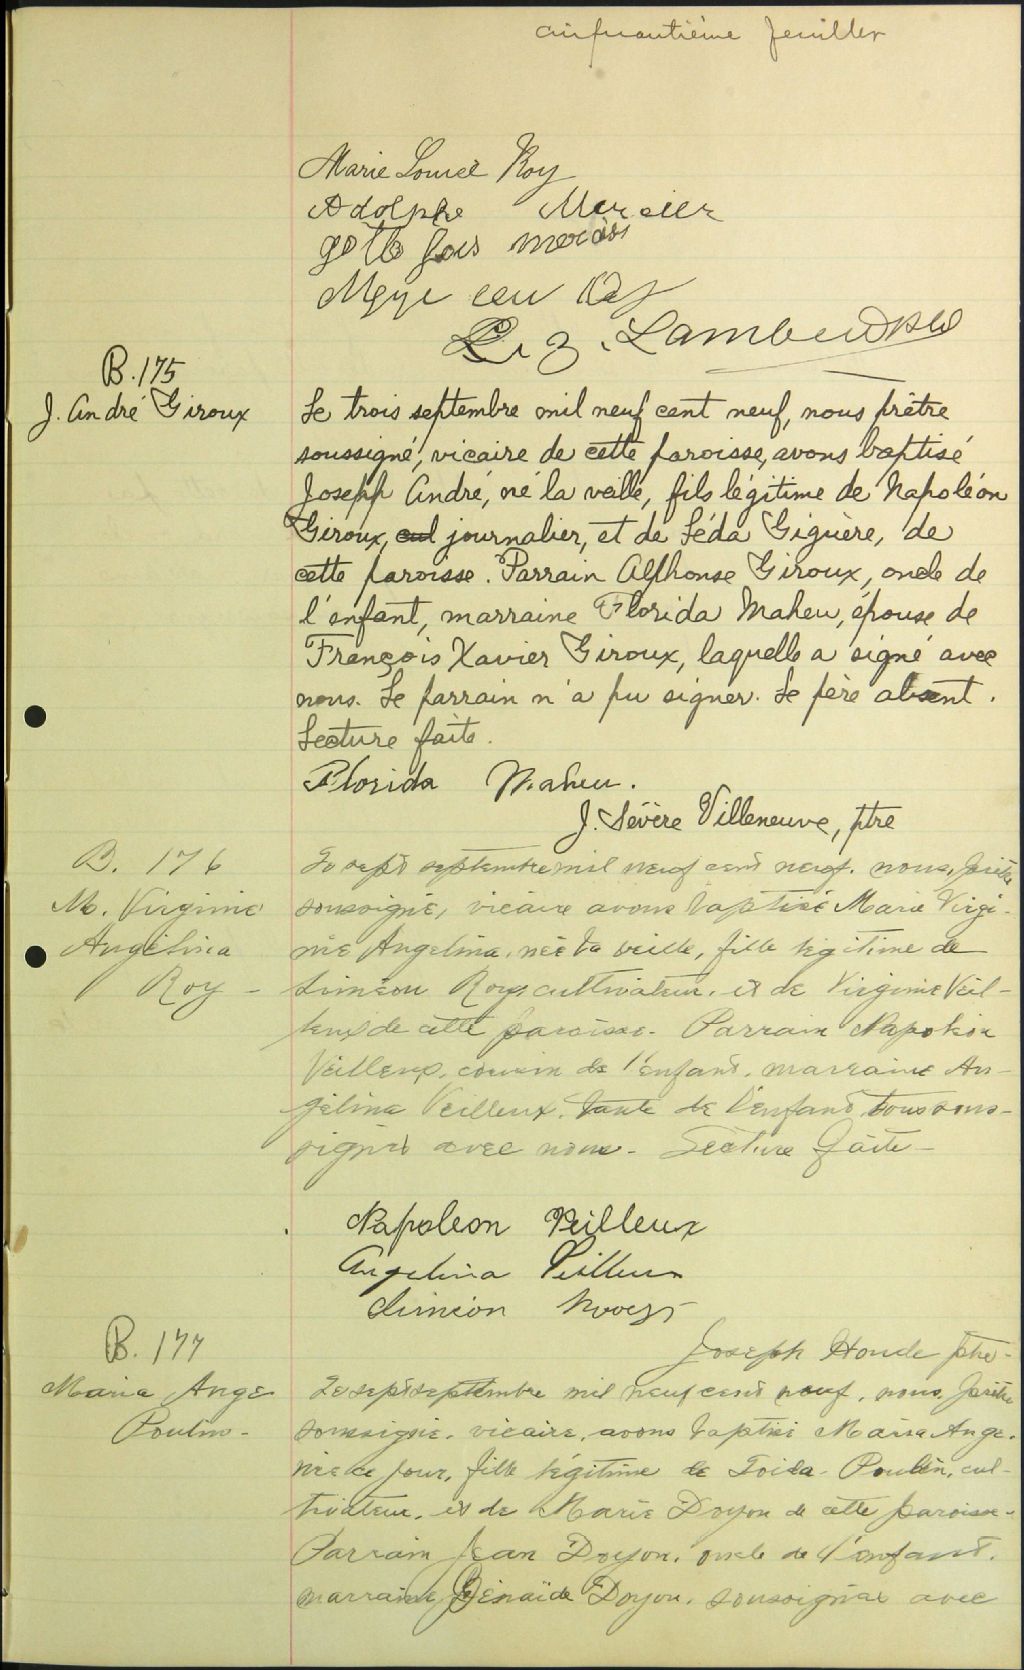 cinquantième feuillet
Marie Louise Roy
Adolphe Mercier
Lambert
B. 175
J. André Giroux
Le trois septembre mil neuf cent neuf, nous prêtre
soussigné, vicaire de cette paroisse, avons baptisé
Joseph André, né la veille, fils légitime de Napoléon
Giroux, journalier, et de Léda Giguère, de
cette paroisse. Parrain Alphonse Giroux, oncle de
l'enfant, marraine Florida Maheu, épouse de
François Xavier Giroux, laquelle a signé avec
nous. Le parrain n'a pu signer. Le père absent.
Lecture faite.
Florida Maheu.
J. Sévère Villeneuve, ptre
B. 176
M. Virginie
Angélina
Roy -
Le sept septembre mil neuf cent neuf. nous, prêtre
soussigné, vicaire avons baptisé Marie Virgi-
nie Angelina, née la veille, fille légitime de
Siméon Roy, cultivateur, et de Virginie Veil-
leux de cette paroisse. Parrain Napoléon
Veilleux, cousin de l'enfant, marraine An-
gélina Veilleux, tante de l'enfant, tous sous-
signés avec nous - Lecture faite -
Napoleon Veilleux
Angelina Veilleux
Siméon
Joseph Houde ptre -
B. 177
Maria Ange
Poulin -
Le sept septembre mil neuf cent neuf, nous, prêtre
soussigné, vicaire, avons baptisé Maria Ange,
née ce jour, fille légitime de Poulin, cul-
tivateur, et de Marie Doyon de cette paroisse -
Parrain Jean Doyon, oncle de l'enfant,
marraine Zénaïde Doyon, soussignés avec